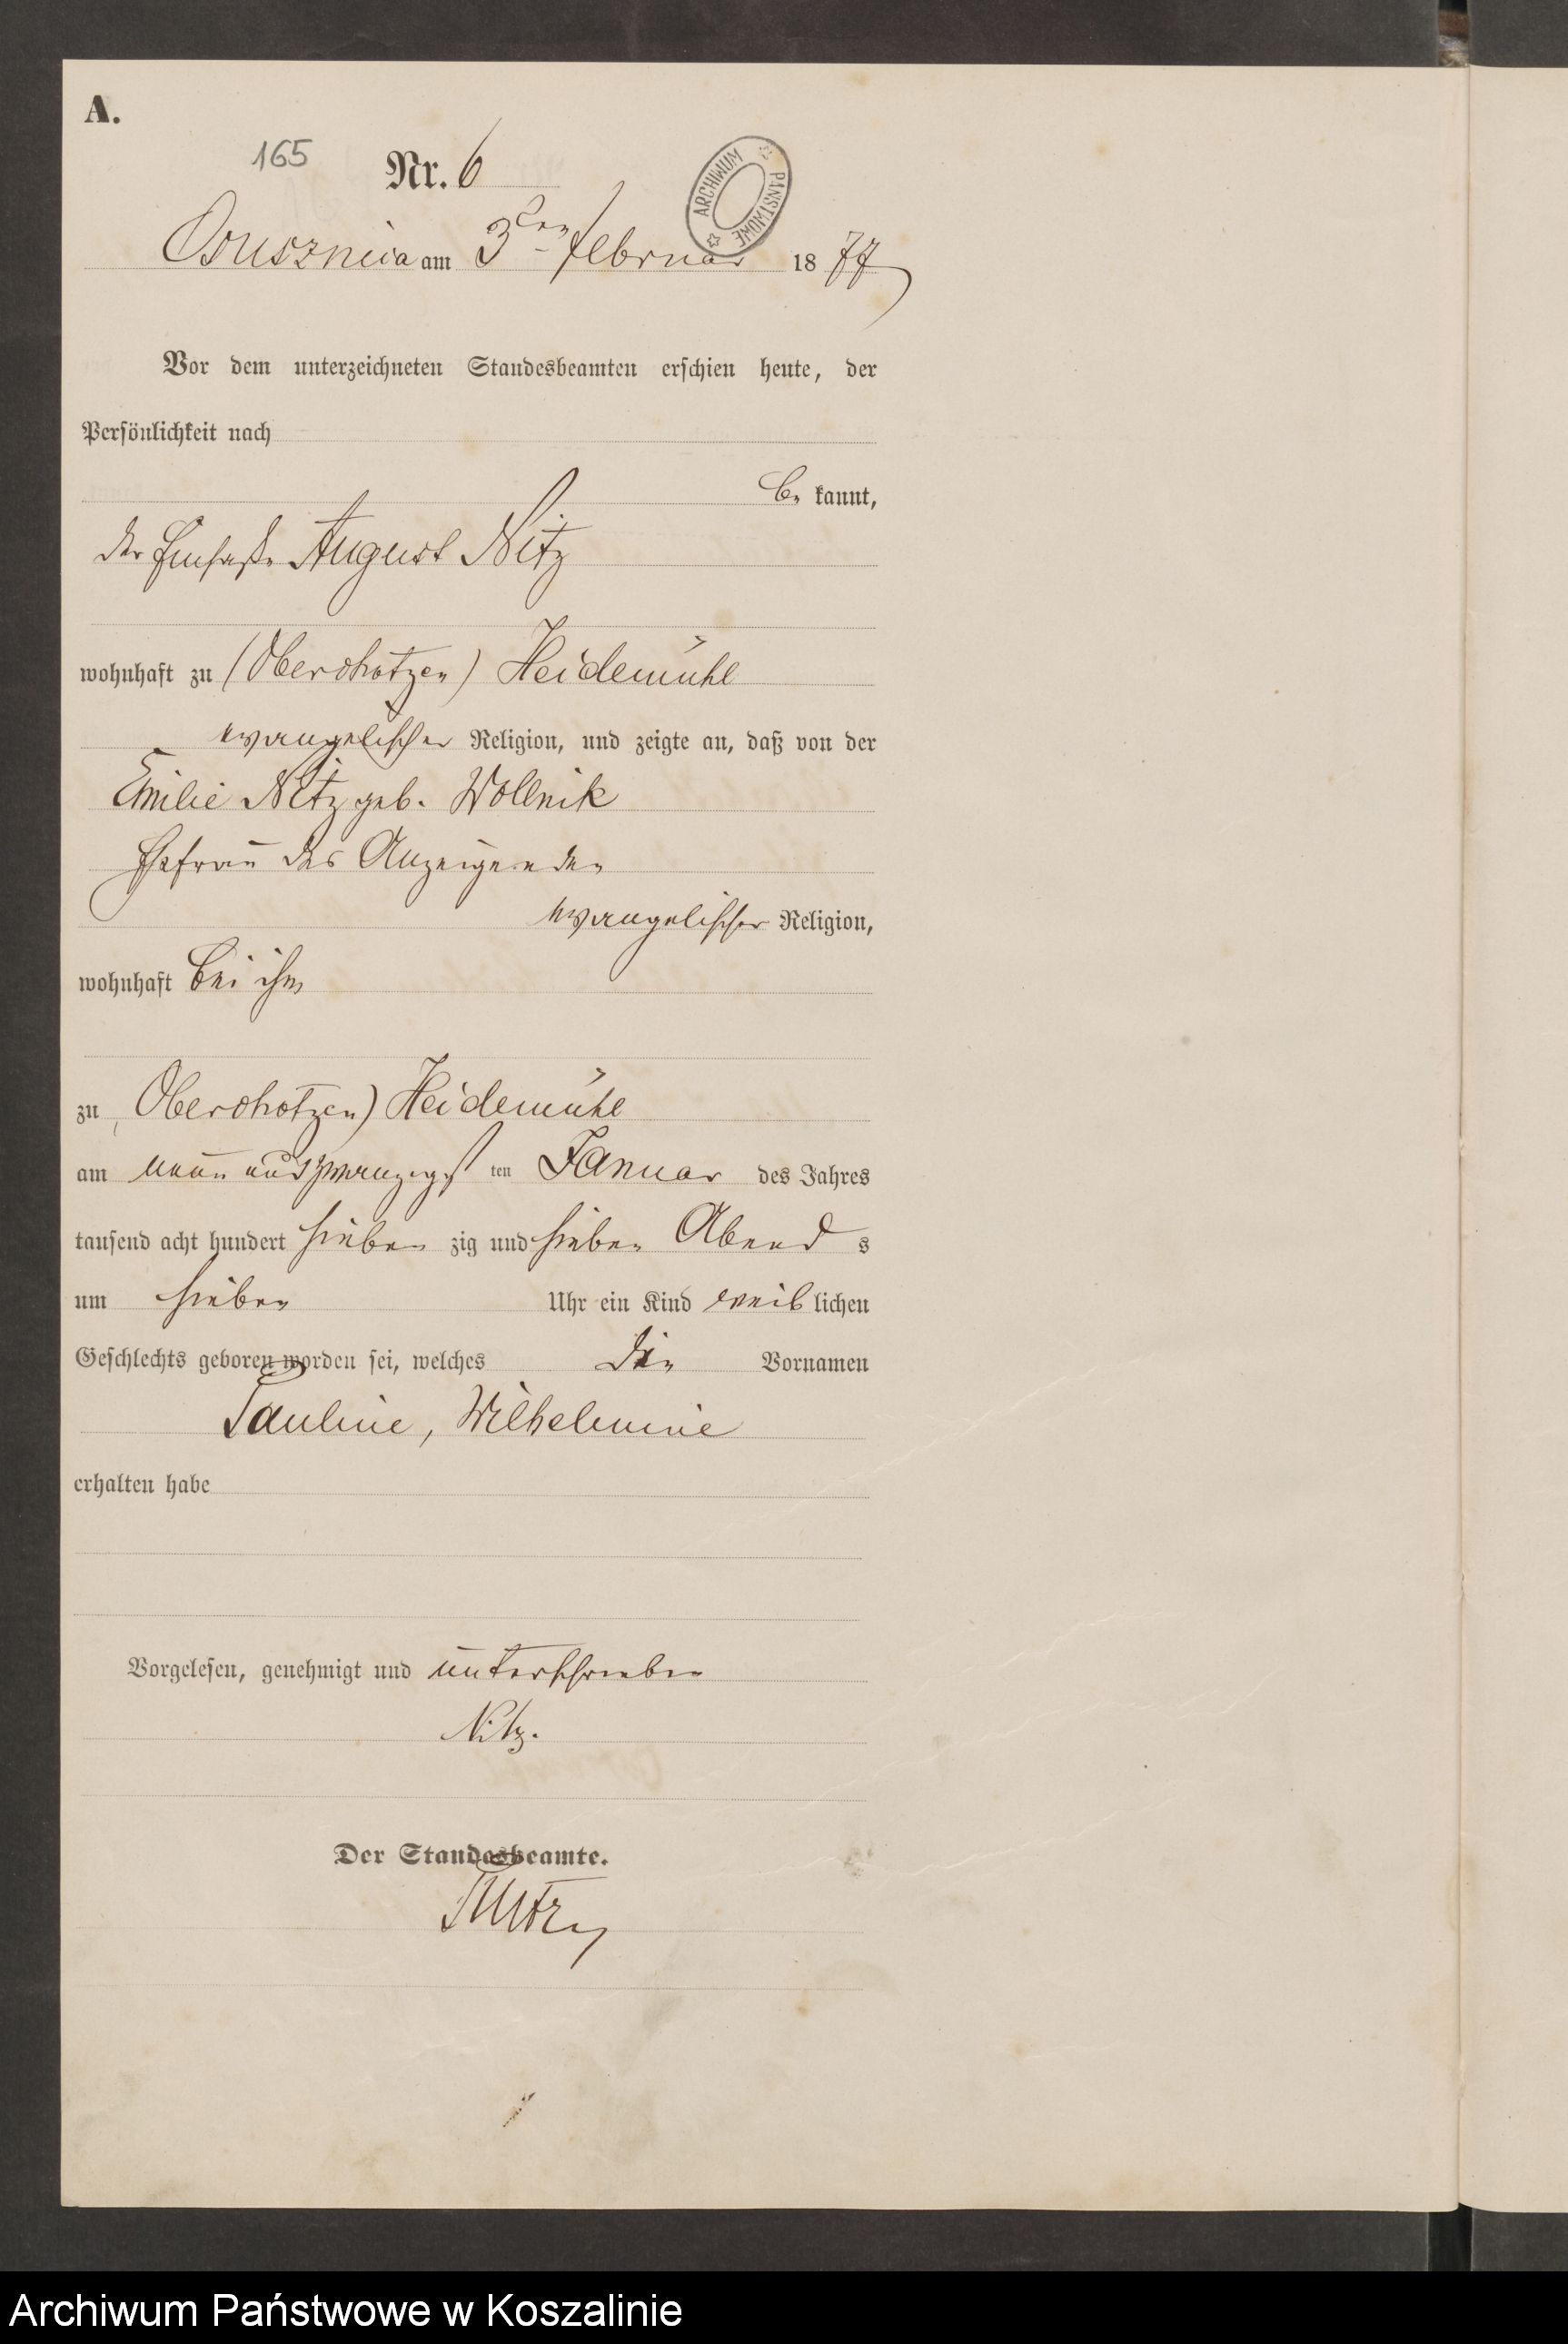 A.
165
Nr. 6
ARCHIWUM PAŃSTWOWE
am 3ten Februar 1877
Vor dem unterzeichneten Standesbeamten erschien heute, der
Persönlichkeit nach
be kannt,
der Einsaße August Nitz
wohnhaft zu (Oberchotzen) Heidemühl
evangelischer Religion, und zeigte an, daß von der
Emilie Nitz geb. Wollnik
Ehefrau des Anzeigenden
evangelischer Religion,
wohnhaft bei ihm
zu Oberchotzen) Heidemühl
am neun und zwanzigst ten Januar des Jahres
tausend acht hundert sieben zig und sieben Abend s
um sieben Uhr ein Kind weib lichen
Geschlechts geboren worden sei, welches die Vornamen
Pauline, Wilhelmine
erhalten habe
Vorgelesen, genehmigt und unterschrieben
Nitz.
Der Standesbeamte.
Archiwum Państwowe w Koszalinie